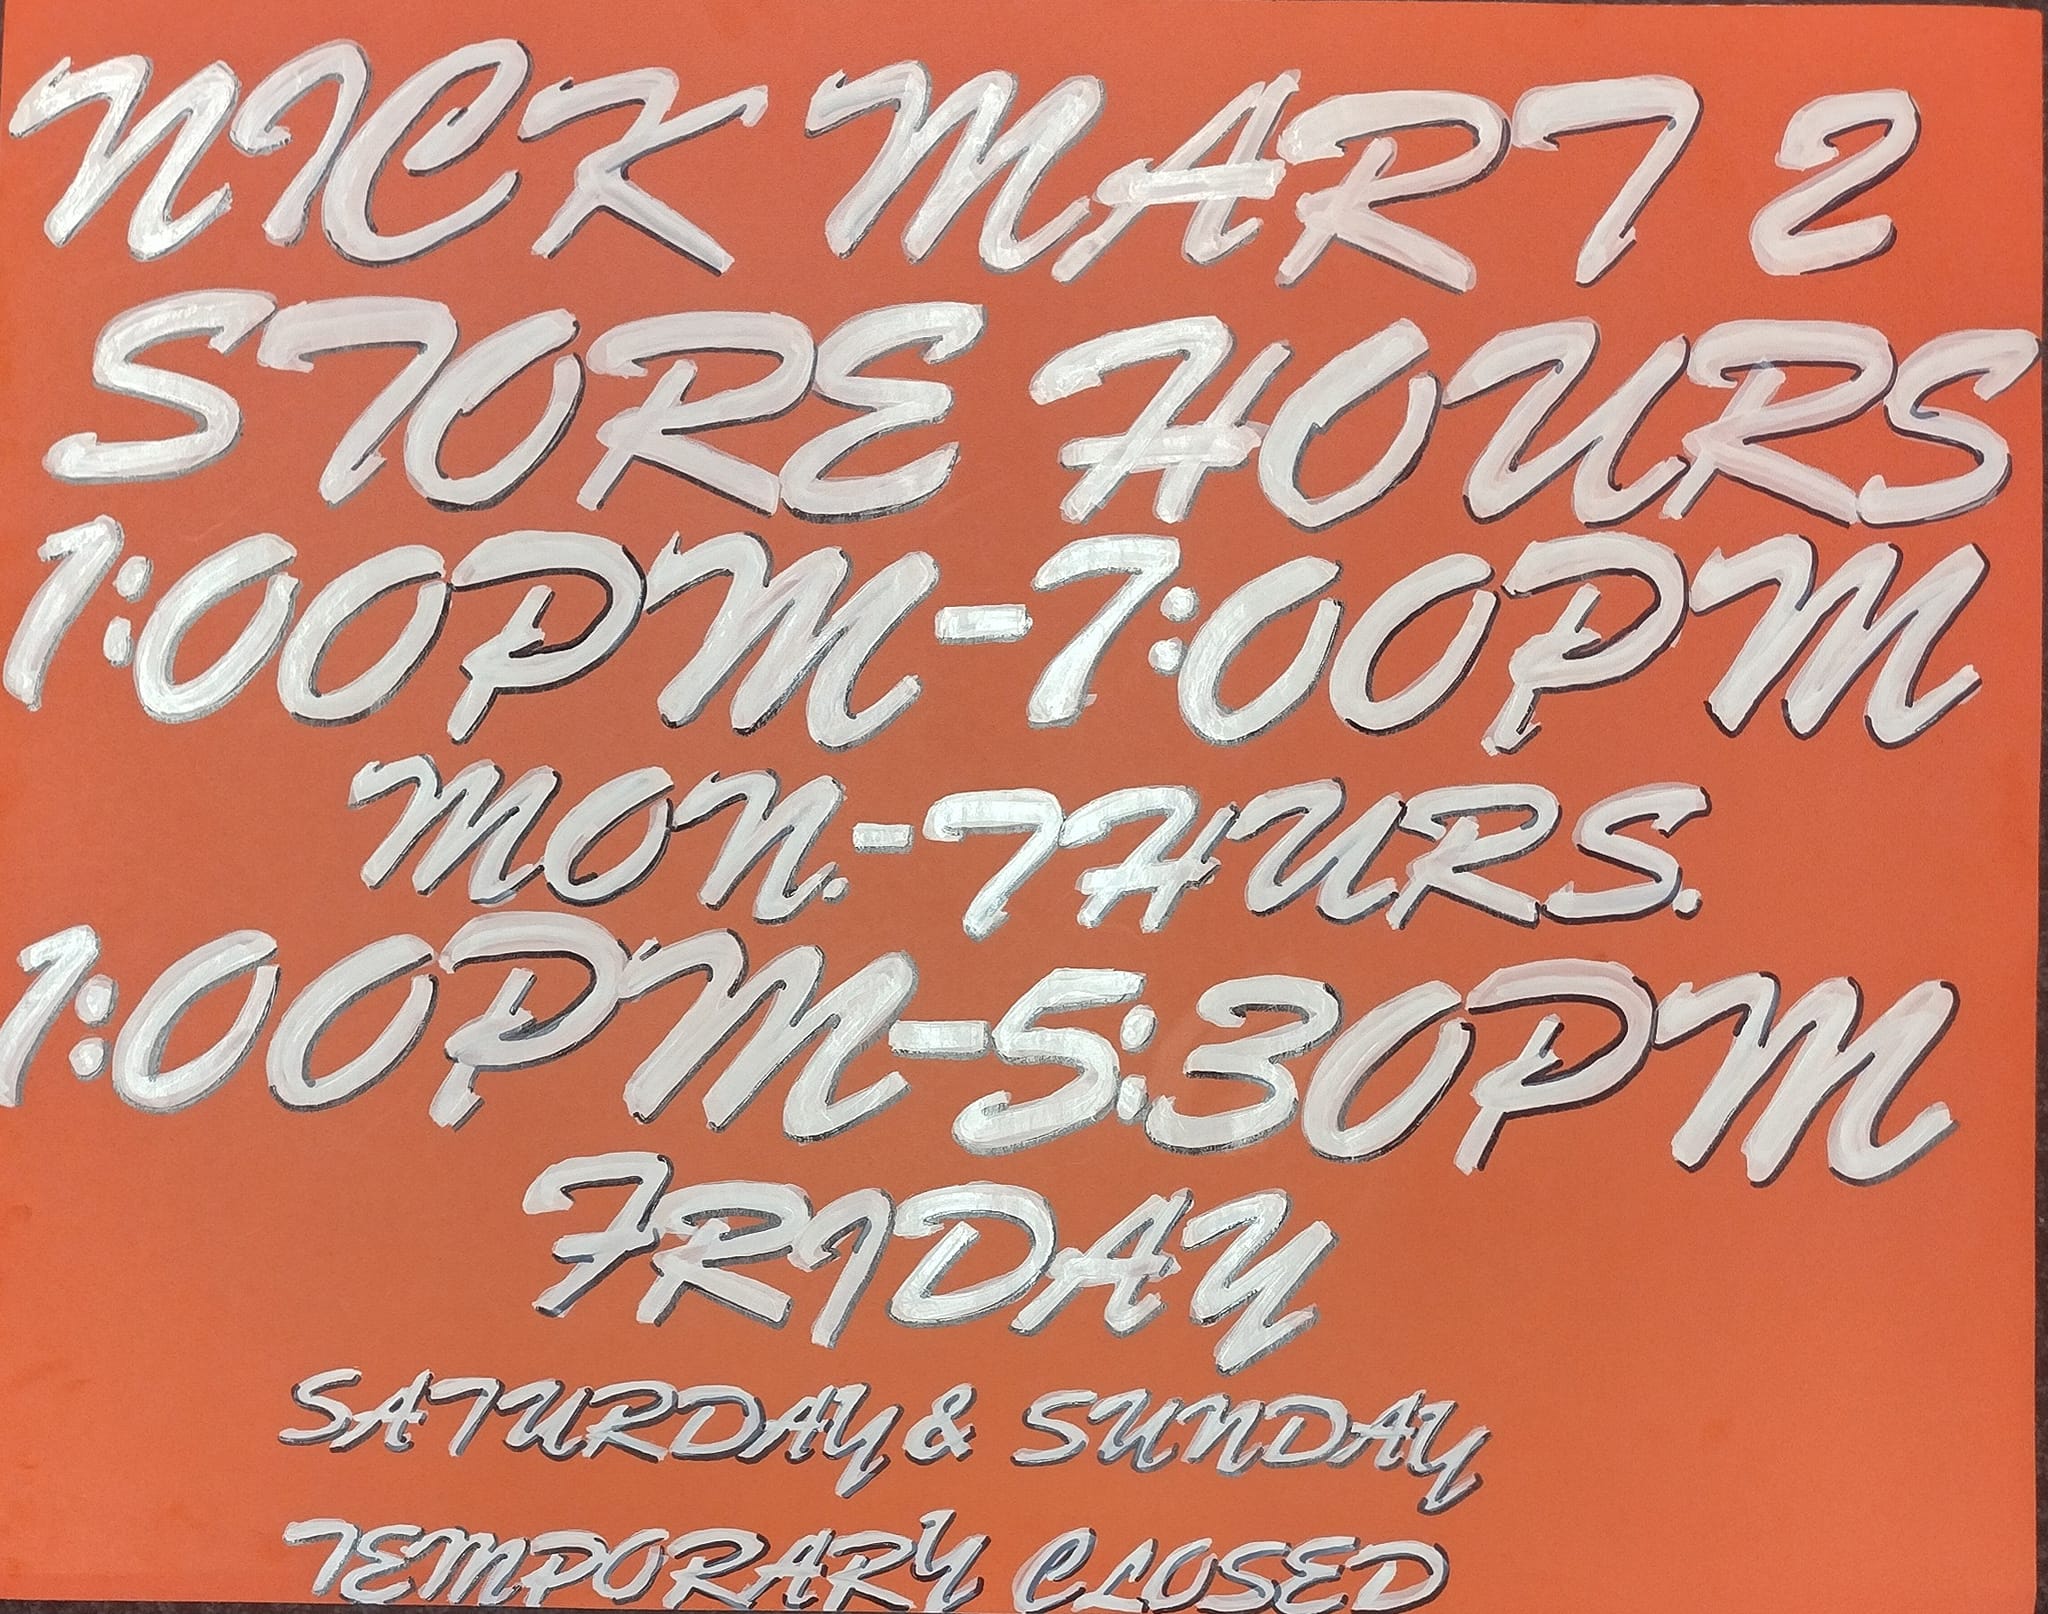 NICK MART 2
STORE HOURS
1:00PM-7:00PM
MON.-THURS.
1:00PM-5:30PM
FRIDAY
SATURDAY & SUNDAY
TEMPORARY CLOSED